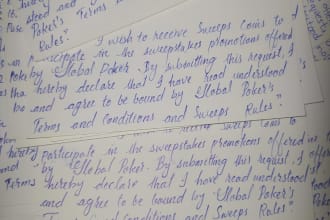 steed and
Pose Poker's Terms
Rules"
"I wish to receive Sweeps Coins to
participate in the sweepstakes promotions offered
by Global Poker. By submitting this request, I
hereby declare that I have read understood
and agree to be bound by Global Poker's
Terms and Conditions and Sweeps Rules"
Sweeps Coins to
hereby
participate in the sweepstakes promotions offered
by Global Poker. By submitting this request, I
Terms
hereby declare that I have read understood
and agree to be bound by Global Poker's
Conditions and Sweeps Rules"